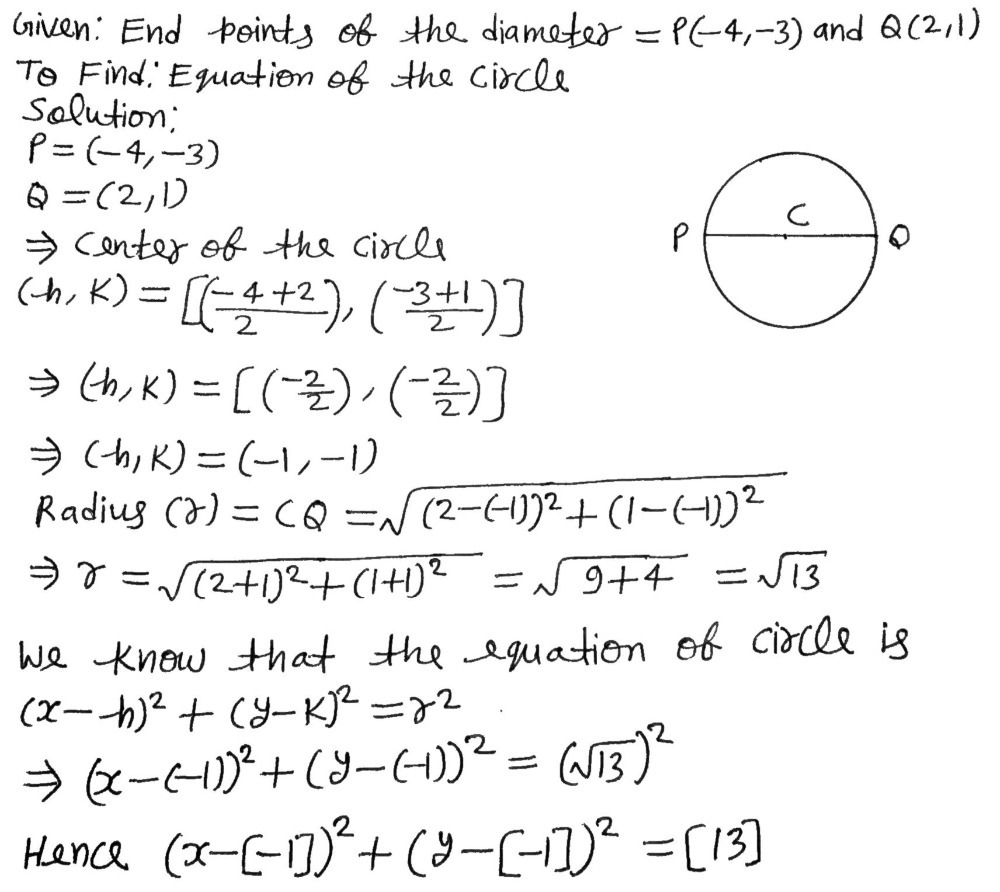 Given: End points of the diameter = P(-4,-3) and Q(2,1)
To Find: Equation of the circle
Solution:
P = (-4,-3)
Q = (2,1)
⇒ Center of the circle
(h, K) = [(-4+2/2), (-3+1/2)]
⇒ (h, K) = [(-2/2), (-2/2)]
⇒ (h, K) = (-1, -1)
Radius (r) = CQ = √(2-(-1))² + (1-(-1))²
⇒ r = √(2+1)² + (1+1)² = √9+4 = √13
We know that the equation of circle is
(x-h)² + (y-K)² = r²
⇒ (x-(-1))² + (y-(-1))² = (√13)²
Hence (x-[-1])² + (y-[-1])² = [13]
P C Q